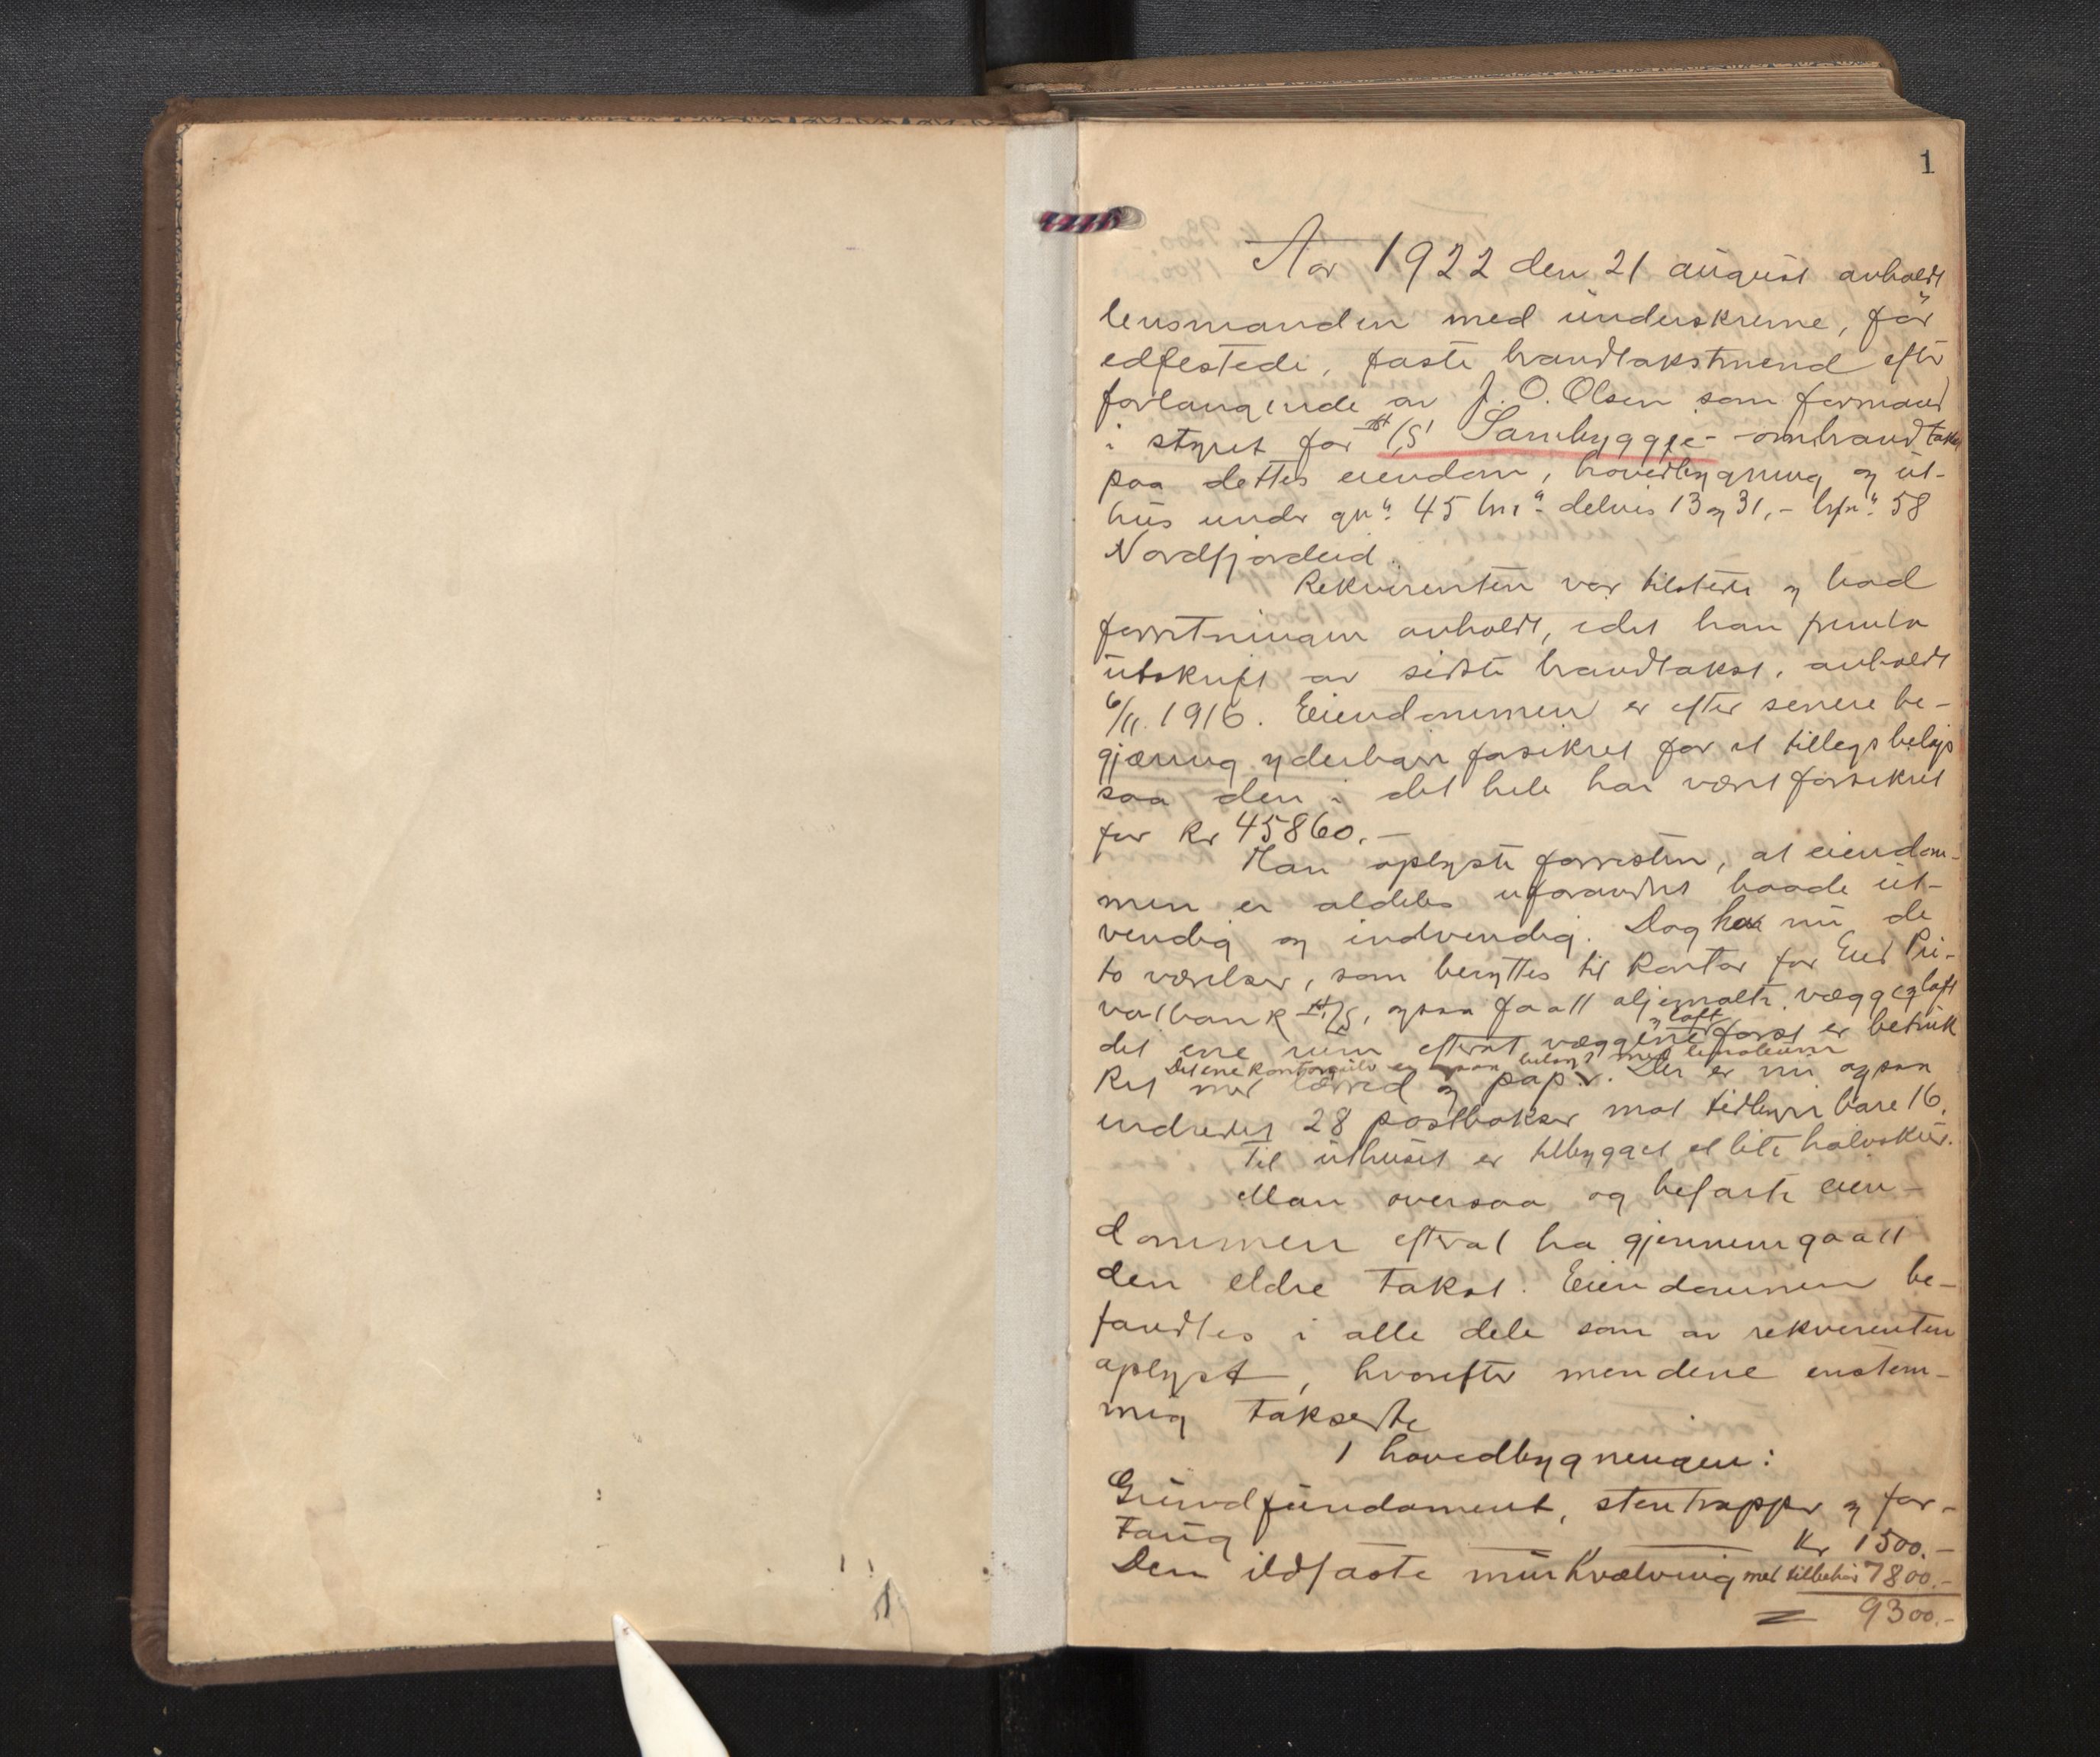 1
Aar 1922 den 21 august avholdt
lensmanden med underskrevne, før
edfestede, faste brandtakstmend efter
forlangende av J. O. Olsen som formand
i styret for A/S Sambygge - ombrandtakst
paa dettes eiendom, hovedbygning og ut-
hus under gn. 45 bn. delvis 13 og 31, - brn. 58
Nordfjordeid.
Rekvirenten var tilstede og bad
forretningen avholdt, idet han fremla
utskrift av sidste brandtakst, avholdt
6/11. 1916. Eiendommen er efter senere be-
gjæring yderligere forsikret for et tillegsbeløp
saa den i det hele har været forsikret
for kr 45860.-
Han oplyste forresten, at eiendom-
men er aldeles uforandret baade ut-
vendig og indvendig. Dog har nu de
to værelser, som benyttes til kontor for Eid Pri-
vatbank A/S, ogsaa faatt oljemalte vægger og loft
det ene rum efterat væggene og loft først er betruk
ket med lærred og papir. Det ene kontorgulv er ogsaa belagt med linoleum Der er nu ogsaa
indredet 28 postbokser mot tidligere bare 16.
Til uthuset er tilbygget et lite halvskur.
Man oversaa og befarte eien-
dommen efterat ha gjennemgaatt
den eldre takst. Eiendommen be-
fandtes i alle dele som av rekvirenten
oplyst, hvorefter mendene enstem-
mig takserte
1 hovedbygningen:
Grundfundament, stentrapper og for-
taug Kr 1500.-
Den ildfaste murhvælving med tilbehør 7800.-
= 9300.-